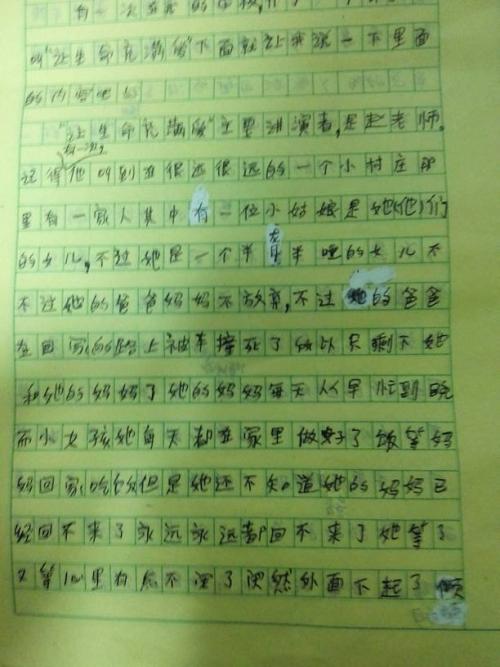 有一次在我的学校,
叫"让生命充满爱"下面就让我说一下里面
的内容吧!
"让生命充满爱"主要讲演者,是赵老师。
有一次
记得他叫到在很远很远的一个小村庄那
里有一家人其中有一位小姑娘是她(他)们
的女儿,不过她是一个半聋半哑的女儿不
不过她的爸爸妈妈不放弃,不过她的爸爸
在回家的路上被车撞死了所以只剩下她
和她的妈妈了她的妈妈每天从早忙到晚
而小女孩她每天都在家里做好了饭等妈
妈回家吃饭但是她还不知道她的妈妈已
经回不来了永远永远都回不来了她等了
又等心里有点不深了突然外面下起了倾